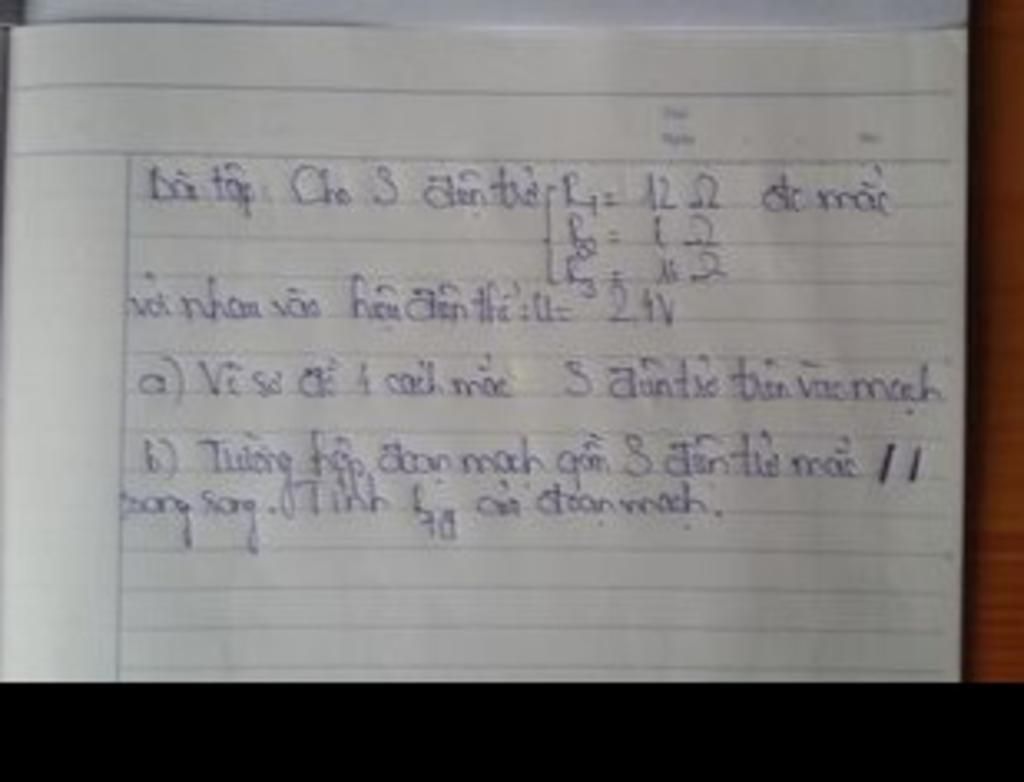 Bài tập: Cho 3 điện trở R1 = 12 Ω đc mắc
R2 = Ω
R3 = 16 Ω
với nhau vào hiệu điện thế: U = 2,4V
a) Vẽ sơ đồ 4 cách mắc 3 điện trở trên vào mạch
b) Trường hợp đoạn mạch gồm 3 điện trở mắc //
song song. Tính Rtđ của đoạn mạch.